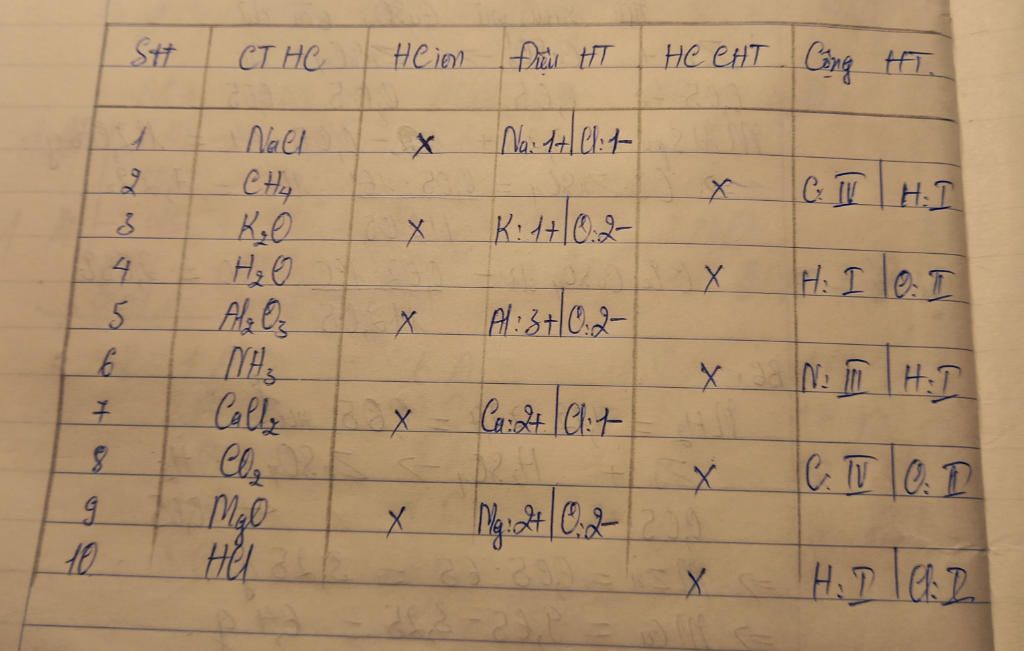 Stt CT HC HC ion Điện HT HC CHT Cộng HT.
1 NaCl x Na: 1+ | Cl: 1-
2 CH₄ x C: IV | H: I
3 K₂O x K: 1+ | O: 2-
4 H₂O x H: I | O: II
5 Al₂O₃ x Al: 3+ | O: 2-
6 NH₃ x N: III | H: I
7 CaCl₂ x Ca: 2+ | Cl: 1-
8 CO₂ x C: IV | O: II
9 MgO x Mg: 2+ | O: 2-
10 HCl x H: I | Cl: I